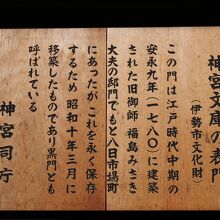 神宮文庫表門
(伊勢市文化財)
この門は江戸時代中期の
安永九年(一七八〇)に建築
された旧御師 福島みさき
大夫の邸門でもと八日市場町
にあったがこれを永く保存
するため 昭和十年三月に
移築したものであり黒門とも
呼ばれている
神宮司庁